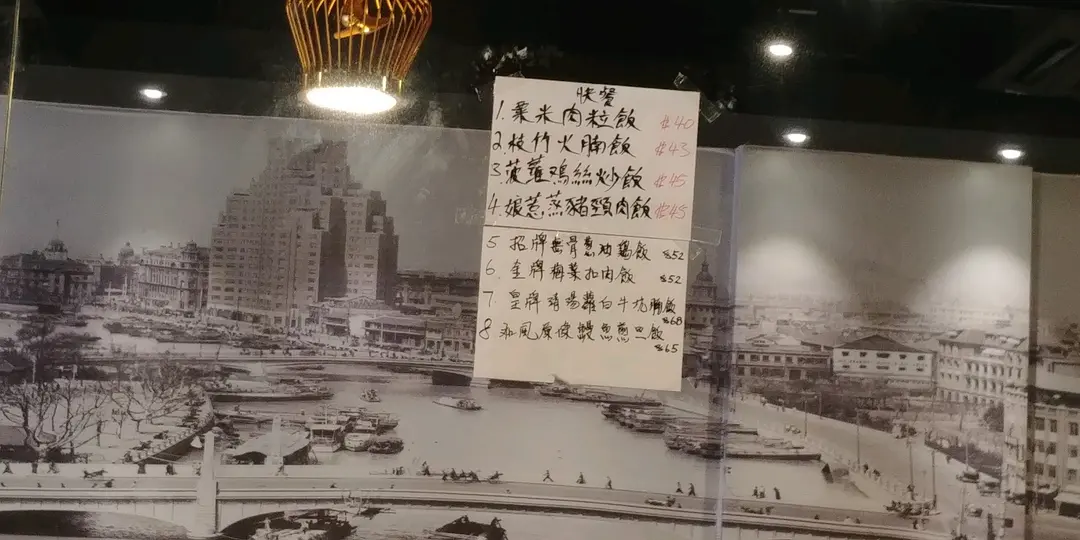 快餐
1. 粟米肉粒飯 $40
2. 枝竹火腩飯 $43
3 菠蘿鷄絲炒飯 $45
4. 娘惹蒸豬頸肉飯 $45
5 招牌無骨葱油鷄飯 $52
6. 金牌梅菜扣肉飯 $52
7. 皇牌清湯蘿白牛坑腩飯
$68
8 和風原條鰻魚煎旦飯
$65